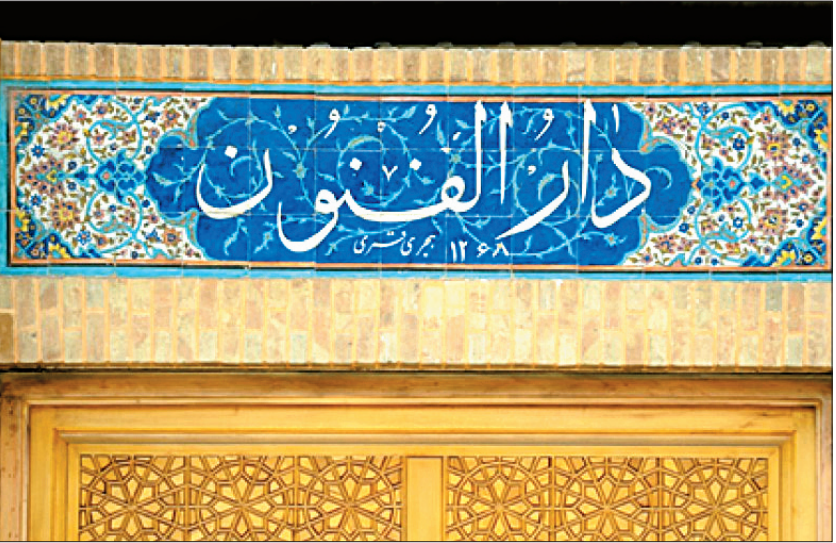 دارُالفُنُون
۱۲۶۸ هجری قمری